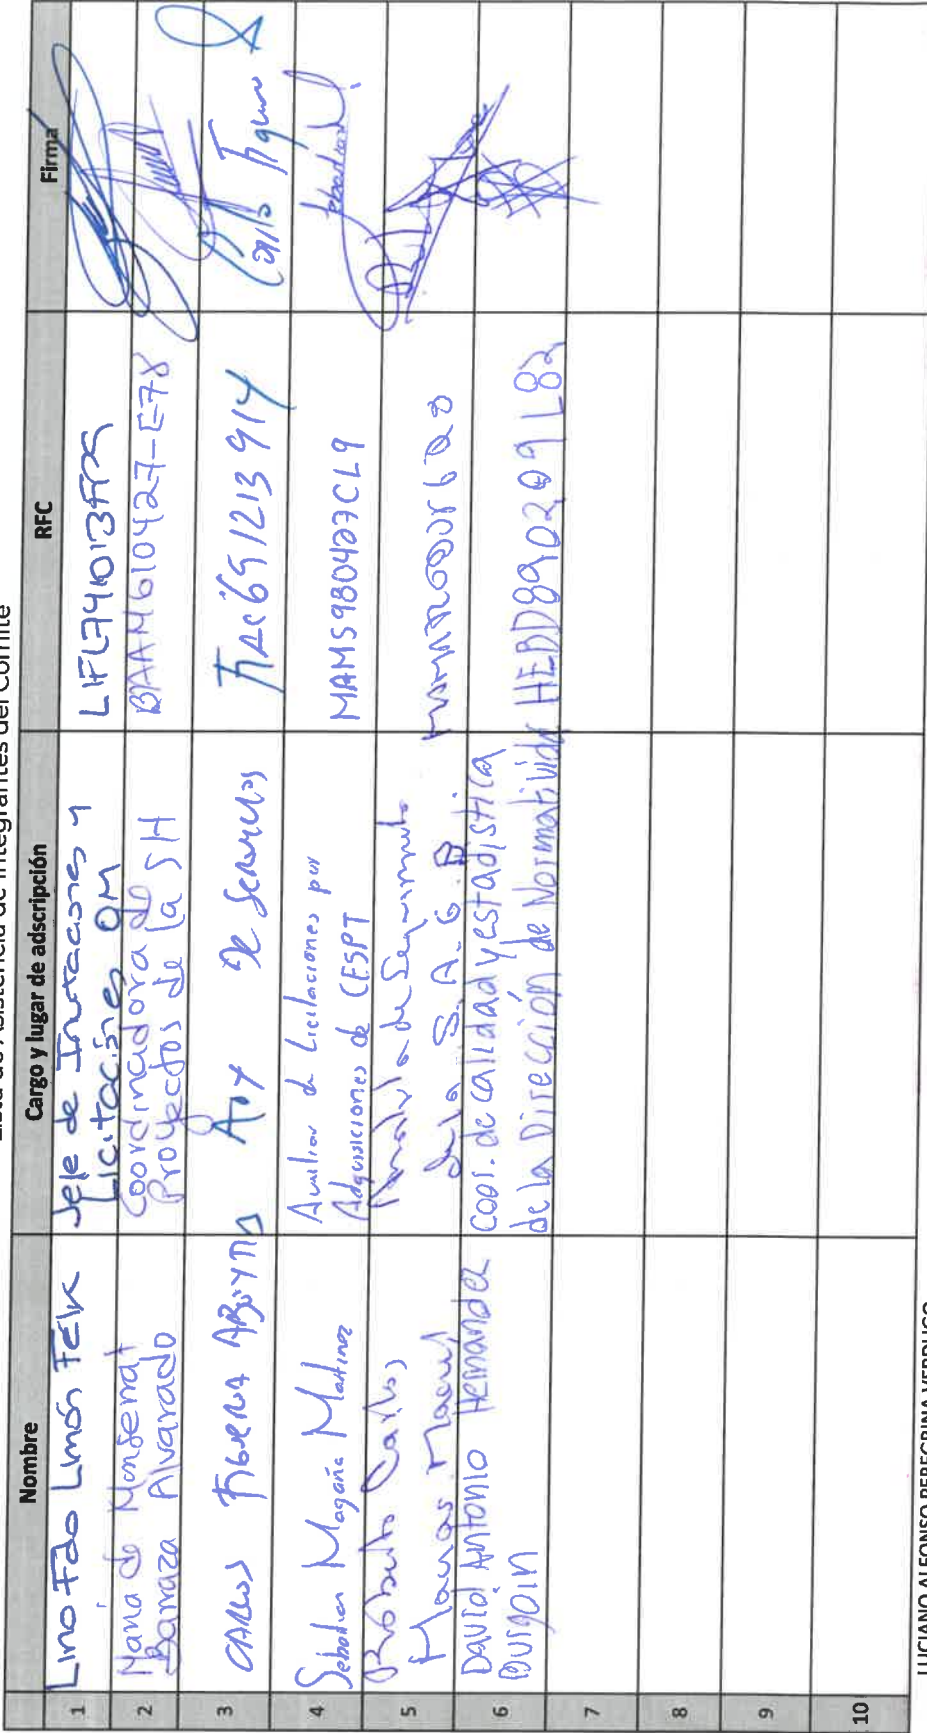 Lista de Asistencia de Integrantes del Comité
Nombre Cargo y lugar de adscripción RFC Firma
1 Lino Fdo Limón Félix Jefe de Invitaciones y
Licitaciones OM
2 María de Monserrat
Barraza Alvarado Coordinadora de
Proyectos de la SH BAAM610427-E78
3 CARLOS FIGUEROA De Servicios
Carlos Figueroa
4 Sebastian Magaña Martinez Auxiliar de Licitaciones por
Adquisiciones de CESPT MAMS980427CL9
Sebastian
5 Roberto Carlos
Macias Analista de Seguimiento
de la S.A.G.
6 David Antonio Hernandez
Burgoin Coor. de calidad y estadistica
de la Dirección de Normatividad HEBD890209L82
7
8
9
10
LUCIANO ALFONSO PEREGRINA VERDUGO